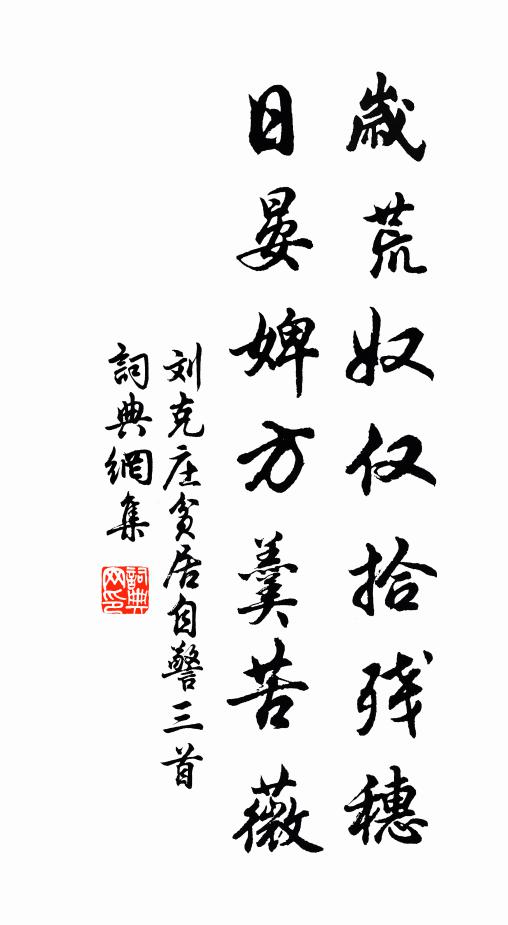 歲荒奴仅拾残穗
日晏婢方羹苦薇
刘克庄贫居自警三首
詞典網集
詞典網印